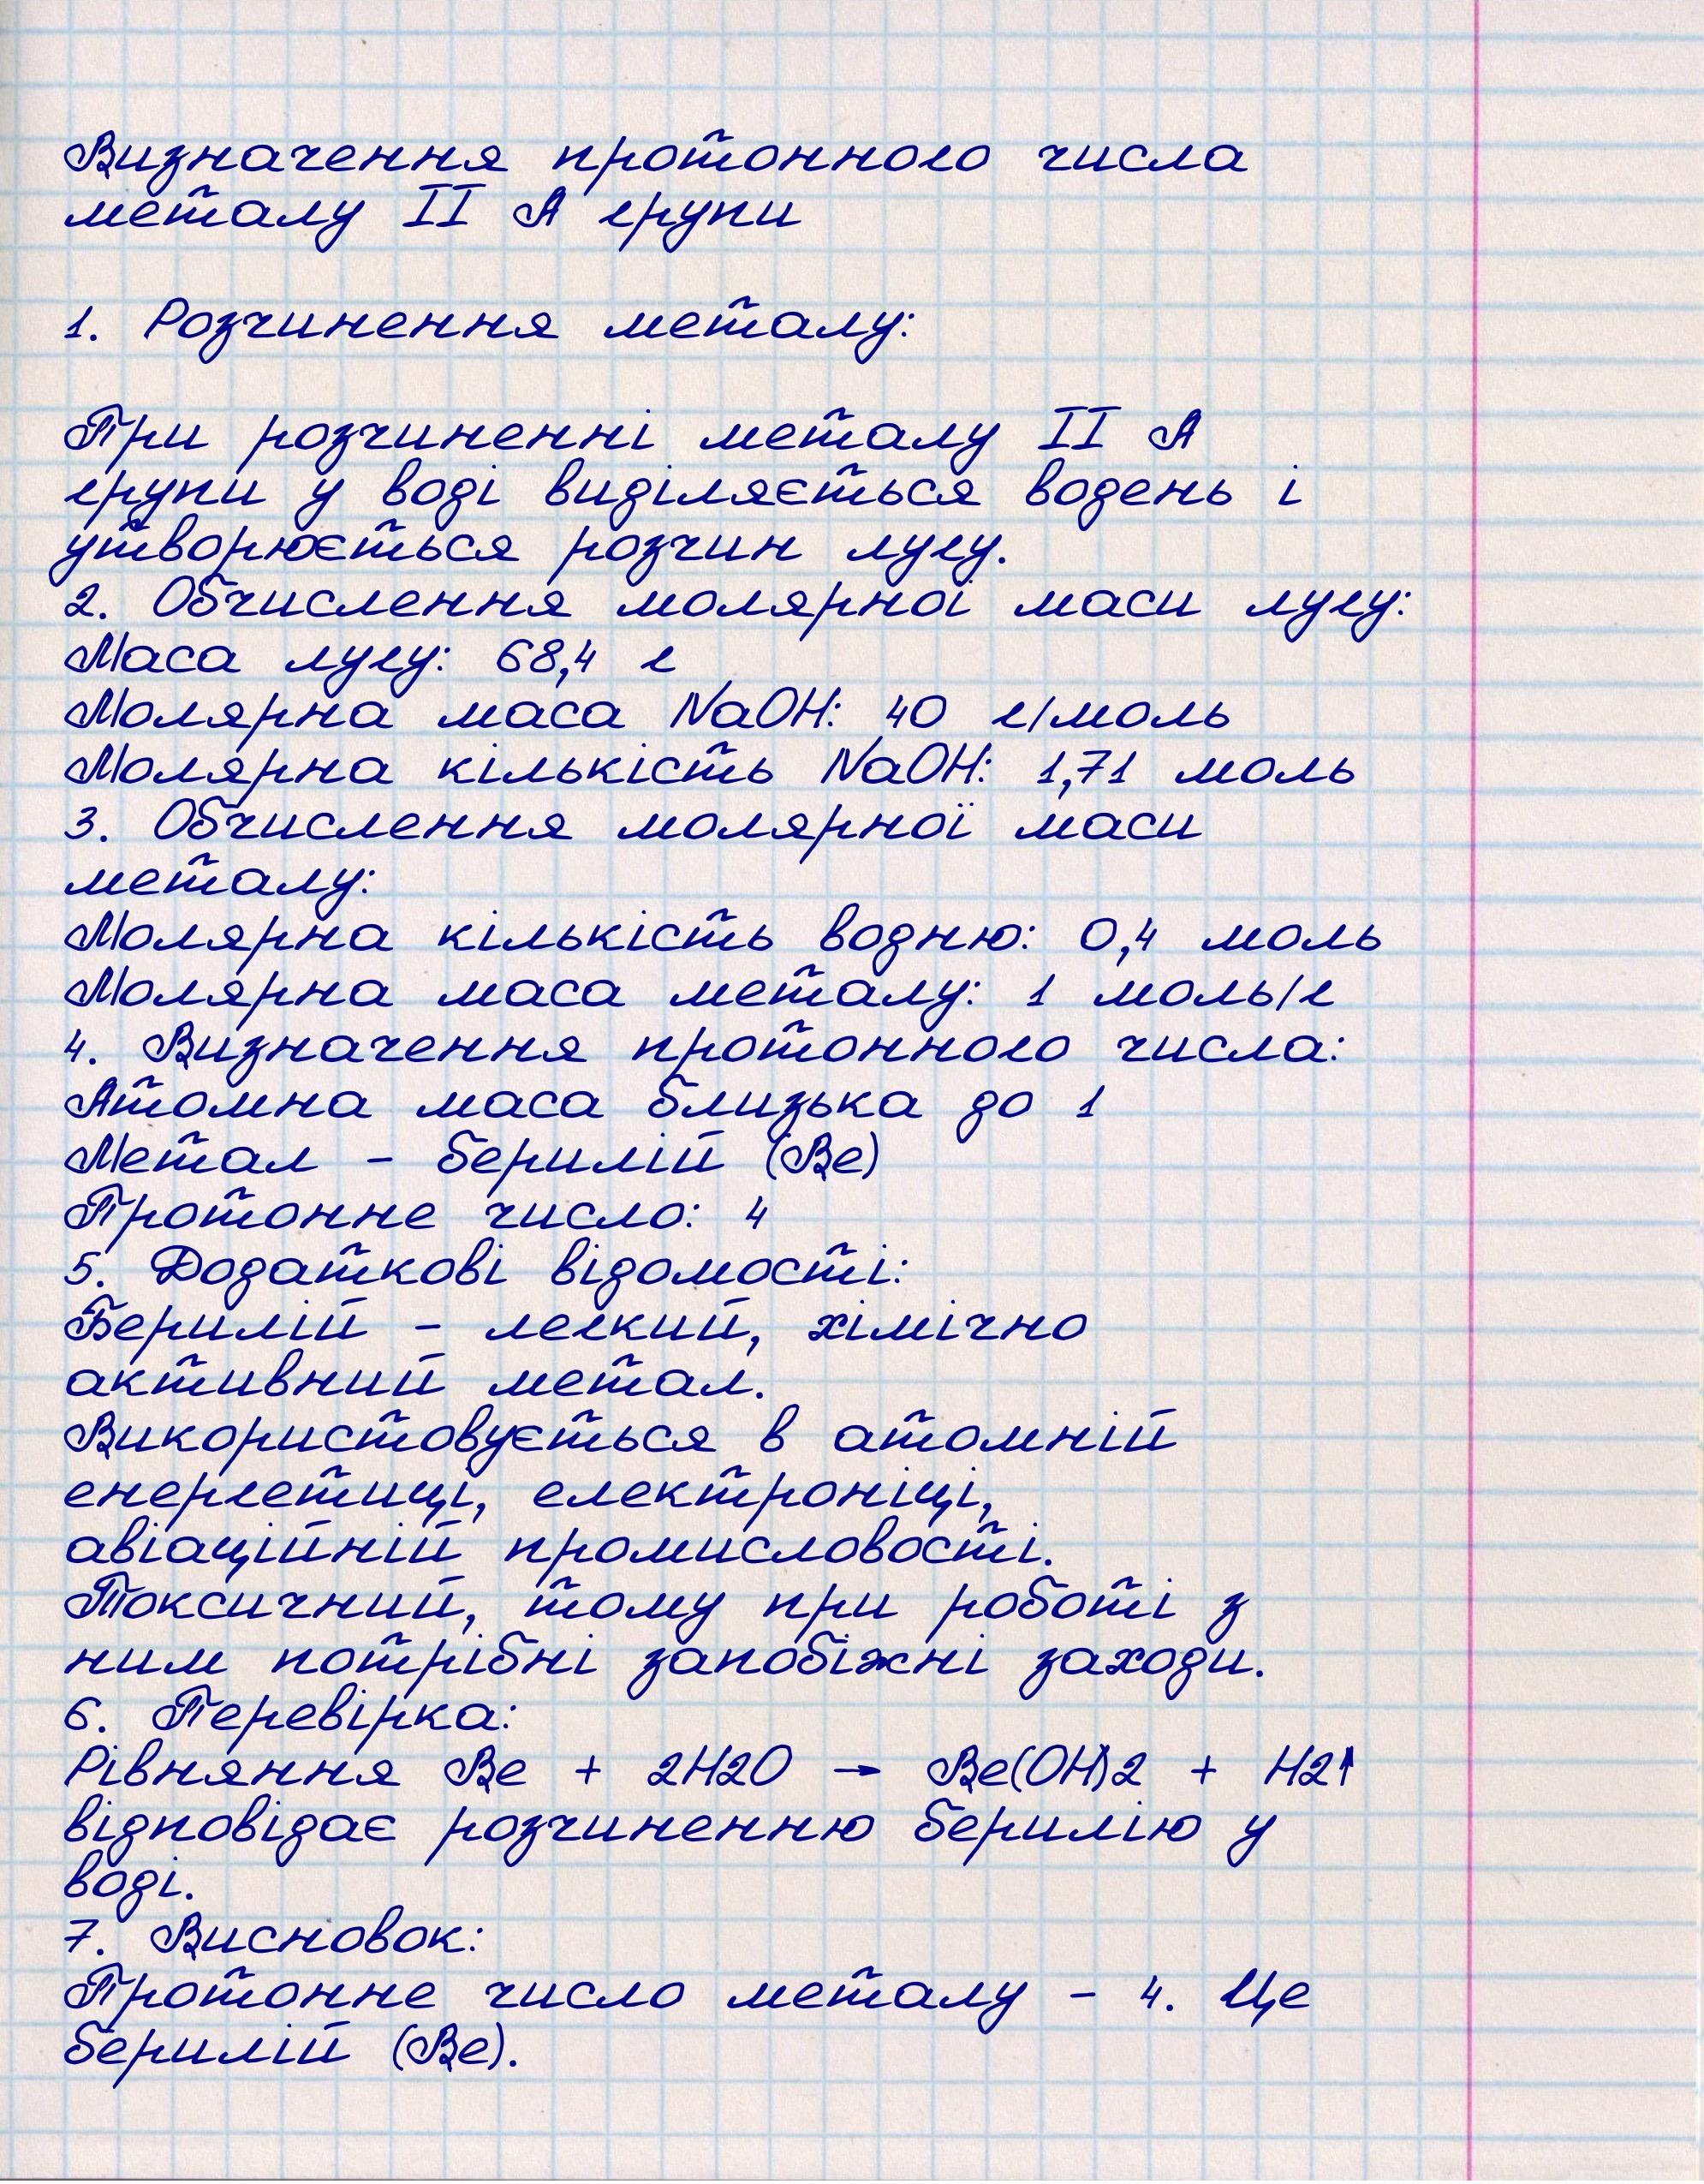 Визначення протонного числа
металу II А групи
1. Розчинення металу:
При розчиненні металу II А
групи у воді виділяється водень і
утворюється розчин лугу.
2. Обчислення молярної маси лугу:
Маса лугу: 68,4 г
Молярна маса NaOH: 40 г/моль
Молярна кількість NaOH: 1,71 моль
3. Обчислення молярної маси
металу:
Молярна кількість водню: 0,4 моль
Молярна маса металу: 1 моль/г
4. Визначення протонного числа:
Атомна маса близька до 1
Метал - берилій (Be)
Протонне число: 4
5. Додаткові відомості:
Берилій - легкий, хімічно
активний метал.
Використовується в атомній
енергетиці, електроніці,
авіаційній промисловості.
Токсичний, тому при роботі з
ним потрібні запобіжні заходи.
6. Перевірка:
Рівняння Be + 2H2O → Be(OH)2 + H2↑
відповідає розчиненню берилію у
воді.
7. Висновок:
Протонне число металу - 4. Це
берилій (Be).